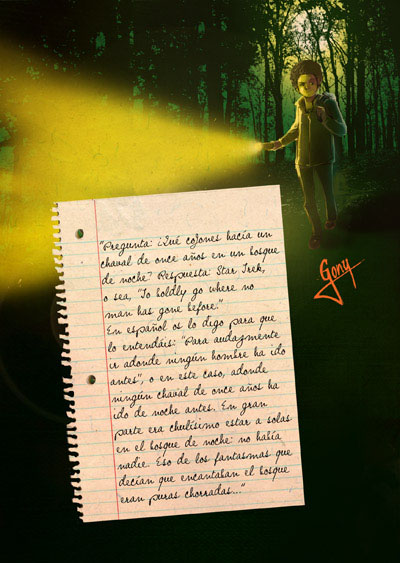 "Pregunta: ¿Qué cojones hacía un
chaval de once años en un bosque
de noche? Respuesta: Star Trek,
o sea, "To boldly go where no
man has gone before."
En español os lo digo para que
lo entendáis: "Para audazmente
ir adonde ningún hombre ha ido
antes", o en este caso, adonde
ningún chaval de once años ha
ido de noche antes. En gran
parte era chulísimo estar a solas
en el bosque de noche: no había
nadie. Eso de los fantasmas que
decían que encantaban el bosque
eran puras chorradas..."
Gony